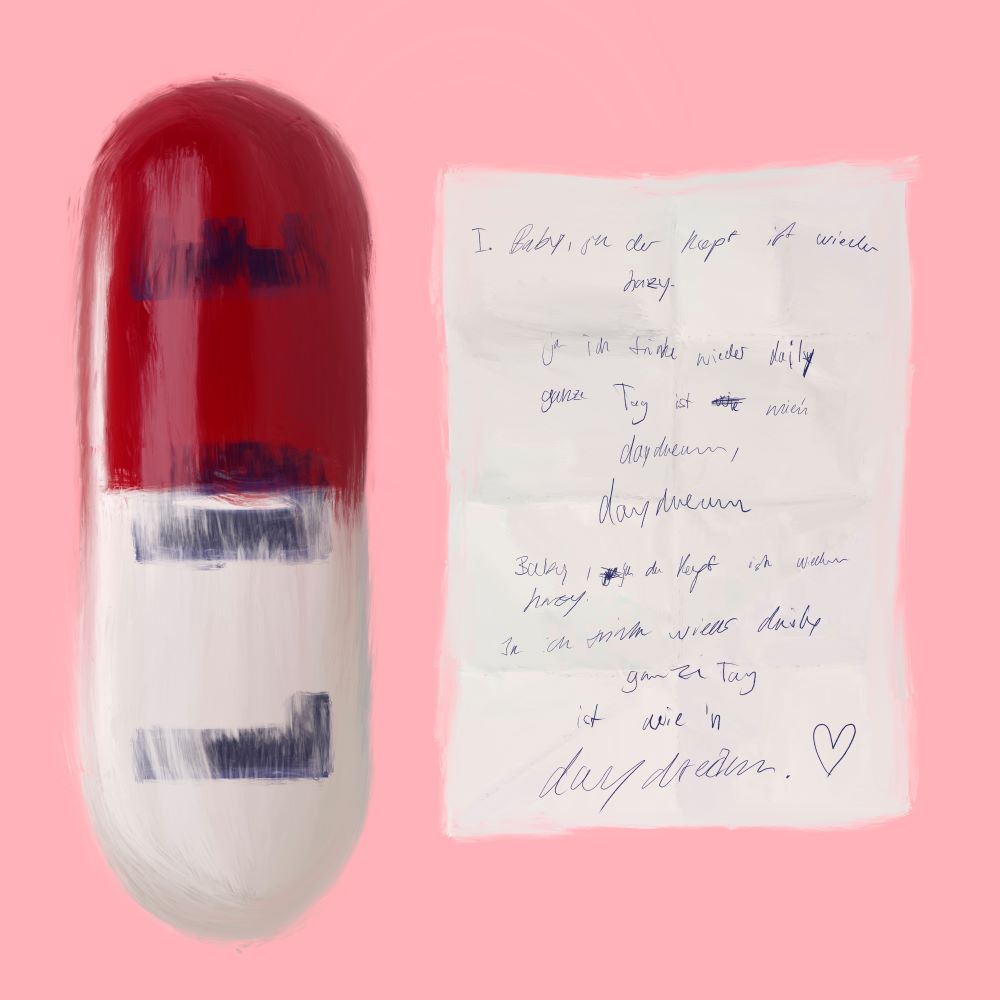 I. Baby, ja der Kopf ist wieder
hazy.
ja ich trinke wieder daily
ganze Tag ist wie'n
daydream,
daydream
Baby, ja der Kopf ist wieder
hazy.
Ja ich trinke wieder daily
ganze Tag
ist wie 'n
daydream.